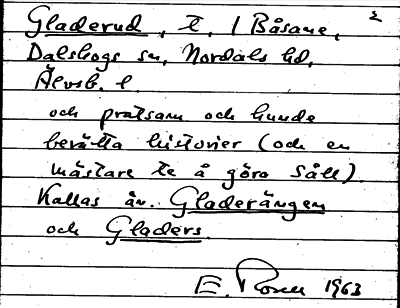 Gladerud, t. / Båsane,
Dalskogs sn, Nordals hd,
Älvsb. l.
och pratsam och kunde
berätta historier (och en
mästare te å göra såll).
Kallas äv. Gladerängen
och Gladers.
E. Rosen 1963